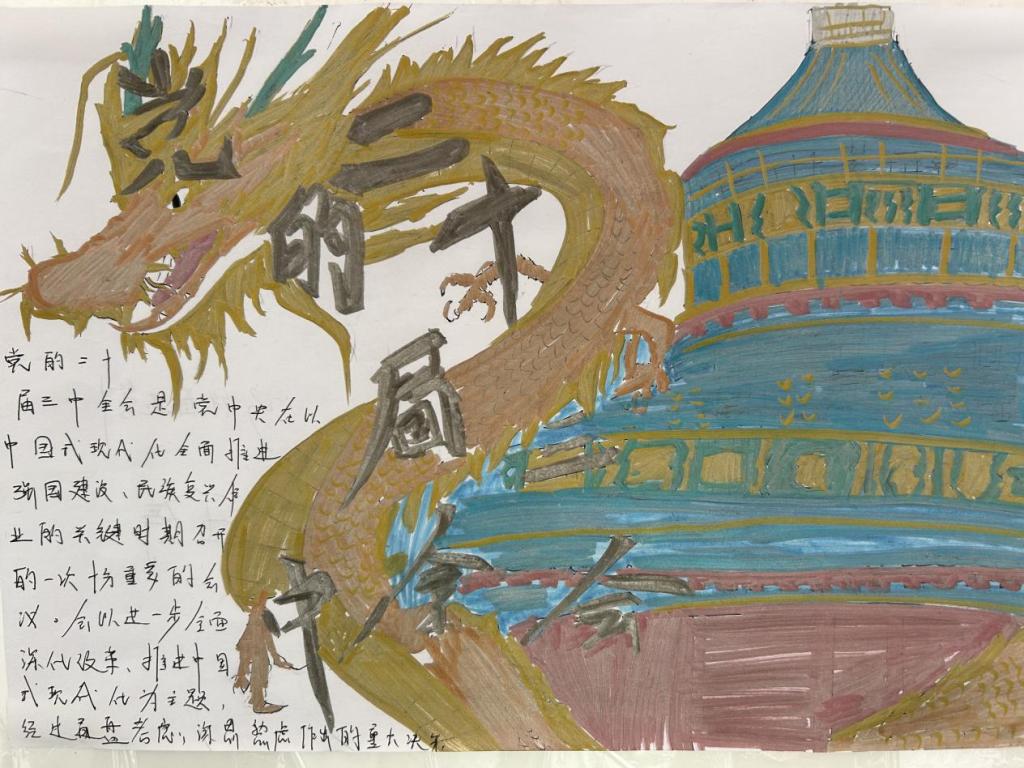 党的二十届三中全会
党的二十
届三中全会是党中央在以
中国式现代化全面推进
强国建设、民族复兴伟
业的关键时期召开
的一次十分重要的会
议。会以进一步全面
深化改革、推进中国
式现代化为主题,
经过通盘考虑、深思熟虑作出的重大决策